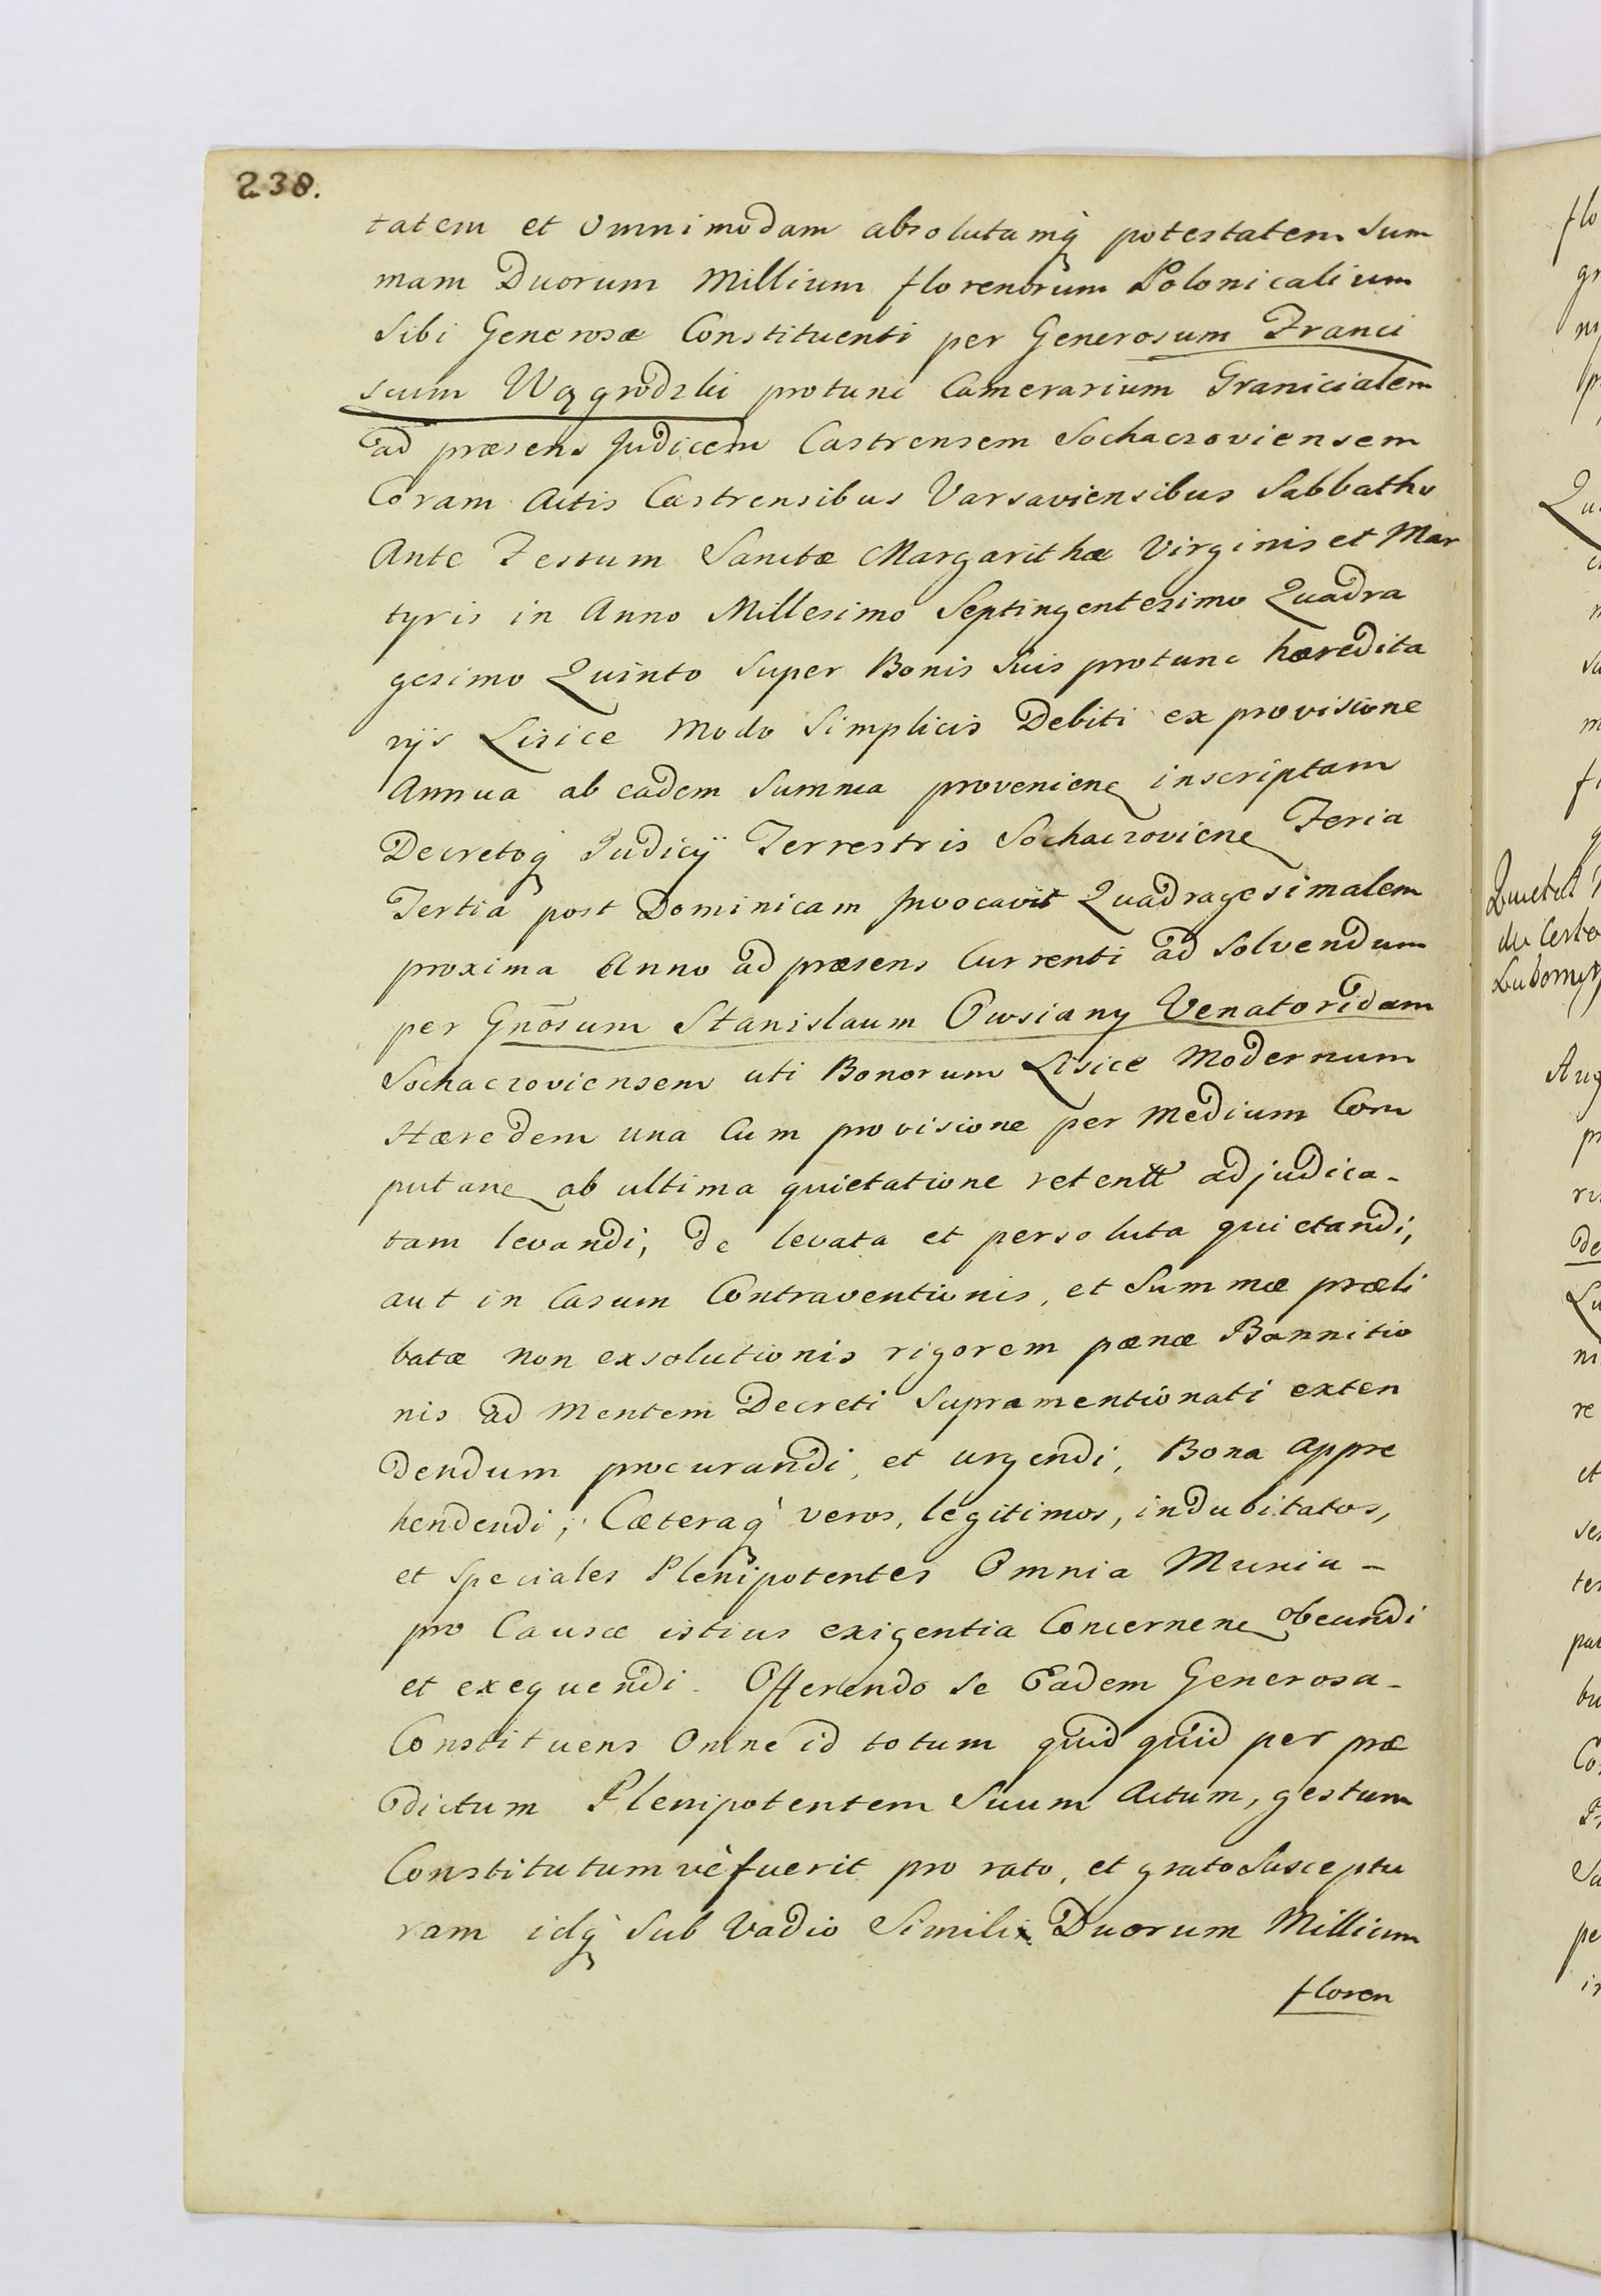 238.
tatem et Omnimodam absolutamq̀ potestatem Sum
mam Duorum Millium florenorum Polonicalium
Sibi Generosæ Constituenti per Generosum Franci
scum Wągrodzki protunc Camerarium Granicialem
ad præsens Judicem Castrensem Sochaczoviensem
Coram Actis Castrensibus Varsaviensibus Sabbatho
Ante Festum Sanctæ Margarithæ Virginis et Mar
tyris in Anno Millesimo Septingentesimo Quadra
gesimo Quinto Super Bonis Suis protunc hæredita
rijs Lisice Modo Simplicis Debiti ex provisione
Annua ab eadem Summa provenienę inscriptam
Decretoq̀ Judicÿ Terrestris Sochaczovienę Feria
Tertia post Dominicam Invocavit Quadragesimalem
proxima Anno ad præsens Currenti ad Solvendum
per Gnosum Stanislaum Owsiany Venatoridam
Sochaczoviensem uti Bonorum Lisice Modernum
Hæredem una Cum provisione per Medium Com
putanę ab ultima quietatione retentt adjudica-
tam levandi, de levata et persoluta quietandi,
aut in Casum Contraventionis, et Summæ præli
batæ non exsolutionis rigorem pænæ Bannitio
nis ad Mentem Decreti Supramentionati exten
dendum procurandi, et urgendi, Bona appre
hendendi; Cæteraq̀ veros, legitimos, indubitatos,
et Speciales Plenipotentes Omnia Munia-
pro Causæ istius exigentia Concernenę obeundi
et exequendi. Offerendo se Eadem Generosa-
Constituens Omne id totum quidquid per præ
dictum Plenipotentem Suum Actum, gestum
Constitutumvè fuerit pro rato, et grato Susceptu
ram idq̀ Sub Vadio Simili Duorum Millium
floren